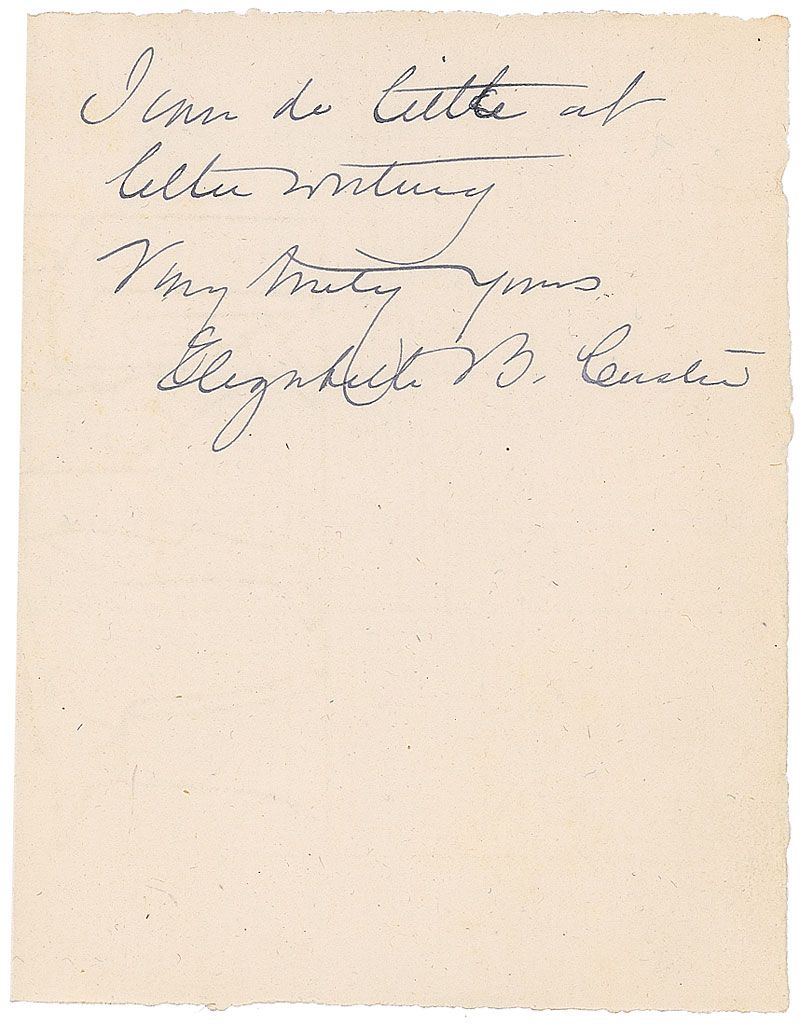 I can do little at
letter writing
Very truly yours
Elizabeth B. Custer